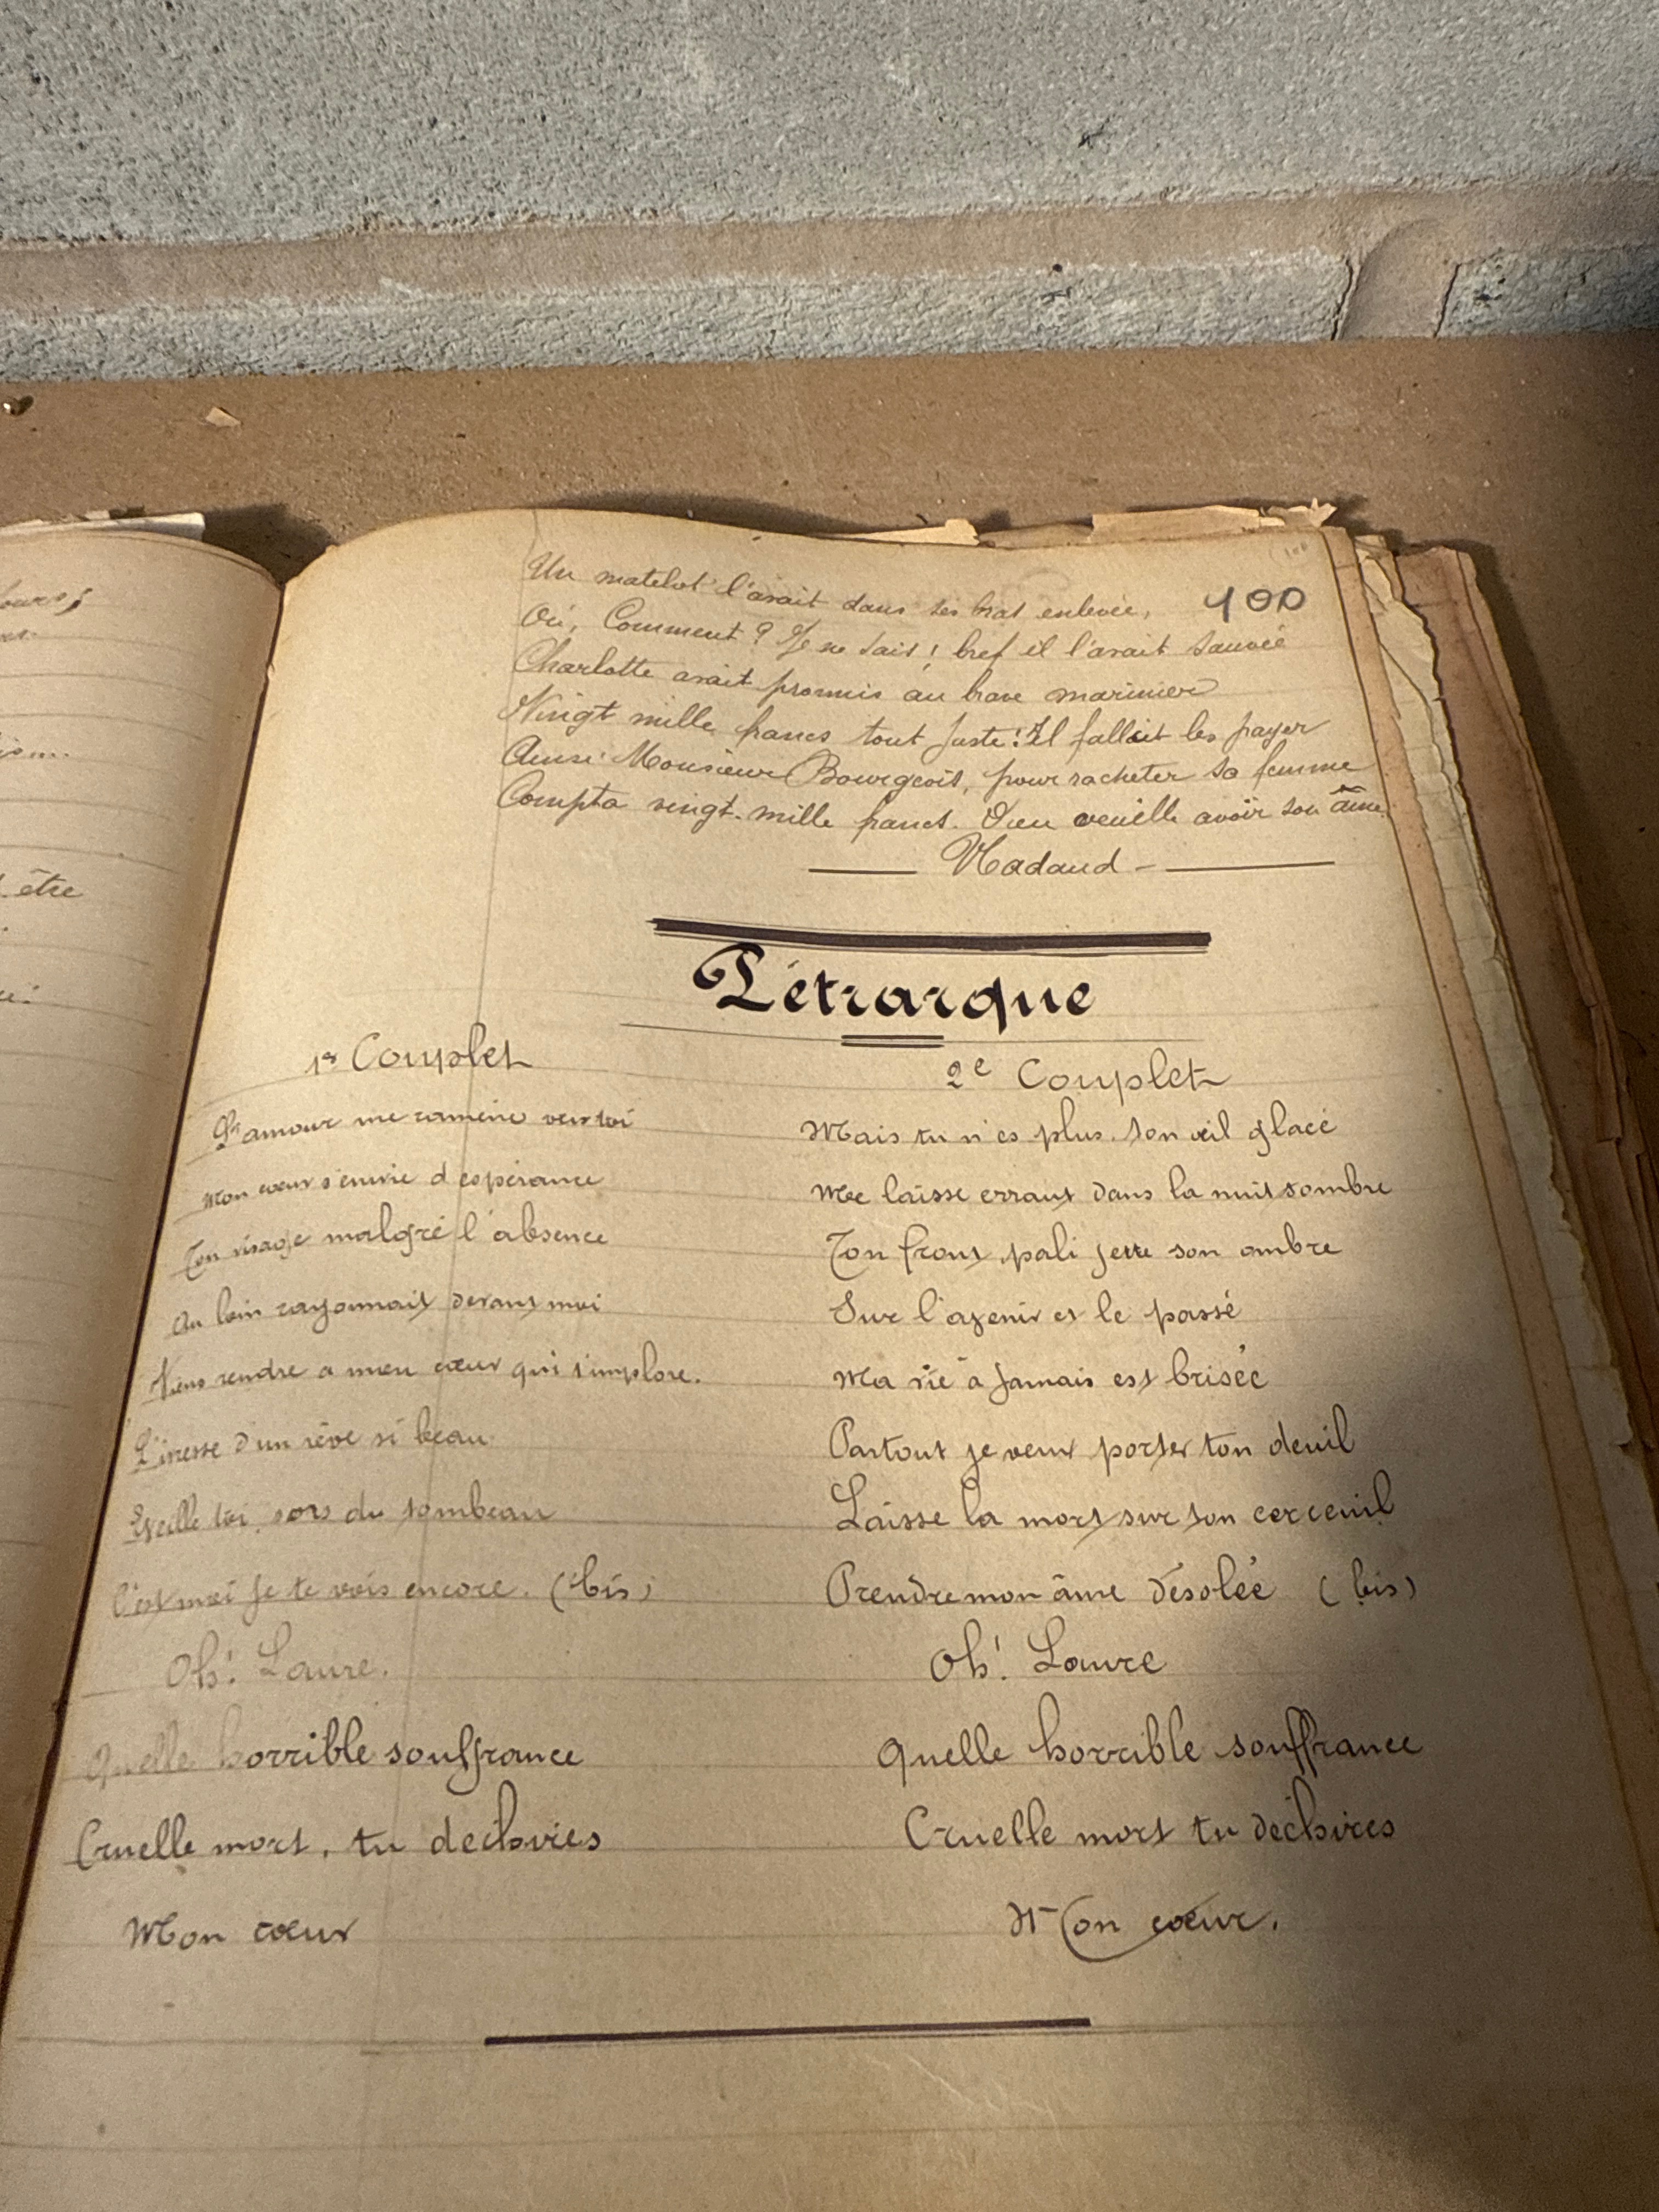 ours;
être
Un matelot l'avait dans ses bras enlevée,
100
Où, Comment? Je ne sais! bref il l'avait sauvée
Charlotte avait promis au brave marinier
Vingt mille francs tout juste! Il fallait les payer
Ainsi Monsieur Bourgeois, pour racheter sa femme
Compta vingt-mille francs. Dieu veuille avoir son âme.
Nadaud
Pétrarque
1er Couplet
L'amour me ramène vers toi
Mon cœur s'enivre d'espérance
Ton visage malgré l'absence
Au loin rayonnait devant moi
Viens rendre a mon cœur qui t'implore.
L'ivresse d'un rêve si beau
Eveille toi, sors du tombeau
C'est moi je te vois encore. (bis)
Oh! Laure.
Quelle horrible souffrance
Cruelle mort, tu dechires
Mon cœur
2e Couplet
Mais tu n'es plus. ton œil glacé
Me laisse errant dans la nuit sombre
Ton front pali jette son ombre
Sur l'avenir et le passé
Ma vie à jamais est brisée
Partout je veux porter ton deuil
Laisse la mort sur ton cerceuil
Prendre mon âme désolée (bis)
Oh! Laure
Quelle horrible souffrance
Cruelle mort tu déchires
Mon cœur.